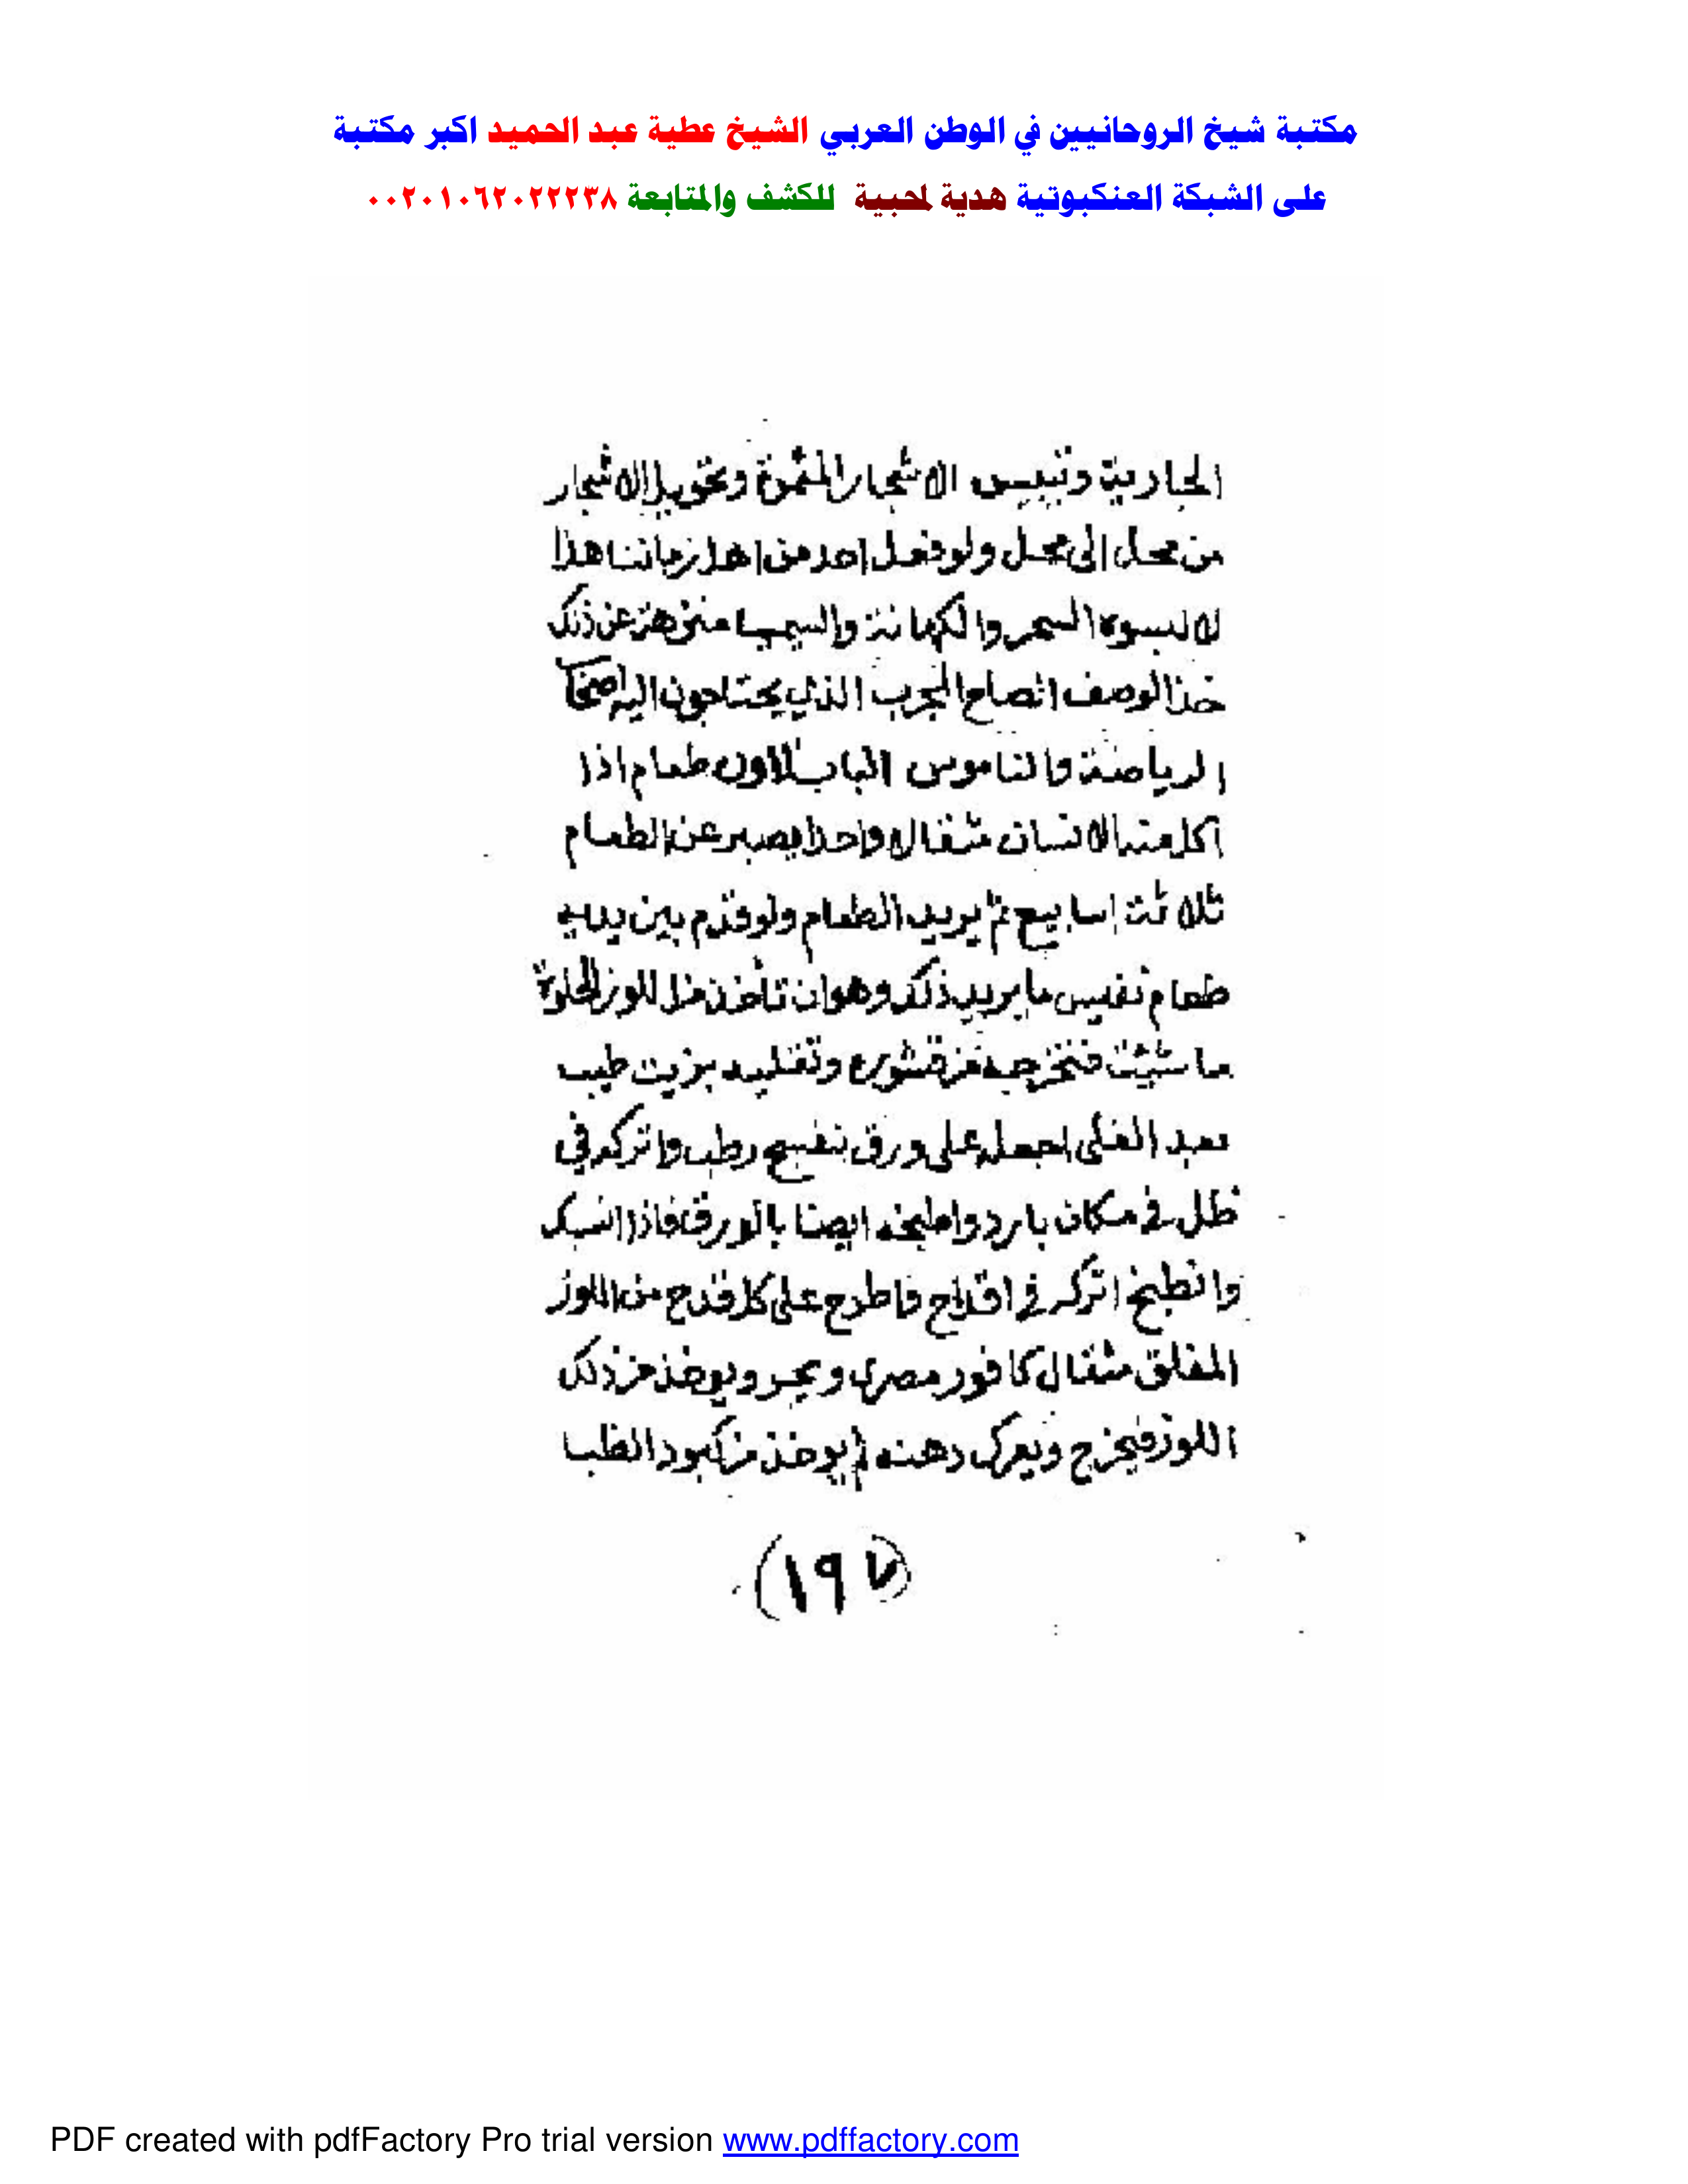 مكتبة شيخ الروحانيين في الوطن العربي الشيخ عطية عبد الحميد اكبر مكتبة
على الشبكة العنكبوتية هدية لمحبية للكشف والمتابعة ٠٠٢٠١٠٦٢٠٢٢٢٣٨
الجارية وتيبيس الاشجار المثمرة وتحويل الاشجار
من محل الى محل ولو فعل احد من اهل زماننا هذا
لا لسوه السحر والكهانة والسيميا منزهة عن ذلك
خذ الوصف الصاح المجرب الذي يحتاجون اليه اصحاب
الرياضة والناموس الباب الاول طعام اذا
اكل منه الانسان مثقالا واحدا يصبر عن الطعام
ثلاثة اسابيع لم يريد الطعام ولو قدم بين يديه
طعام نفيس ما يريد ذلك وهو ان تأخذ من اللوز الحلوة
ما شئت فتخرجه من قشوره وتقليه بزيت طيب
بعد الغلى اجعله على ورق بنفسج رطب واتركه في
ظل في مكان بارد واطبخه ايضا بالورق فاذا انسبك
وانطبخ اتركه في اقداح واطرح على كل قدح من اللوز
المفلق مثقال كافور مصرى ويجر ويوخذ من ذلك
اللوز فيخرج ويعرك دهنه ثم يوخذ من كبود الظبا
(١٩٧)
PDF created with pdfFactory Pro trial version www.pdffactory.com